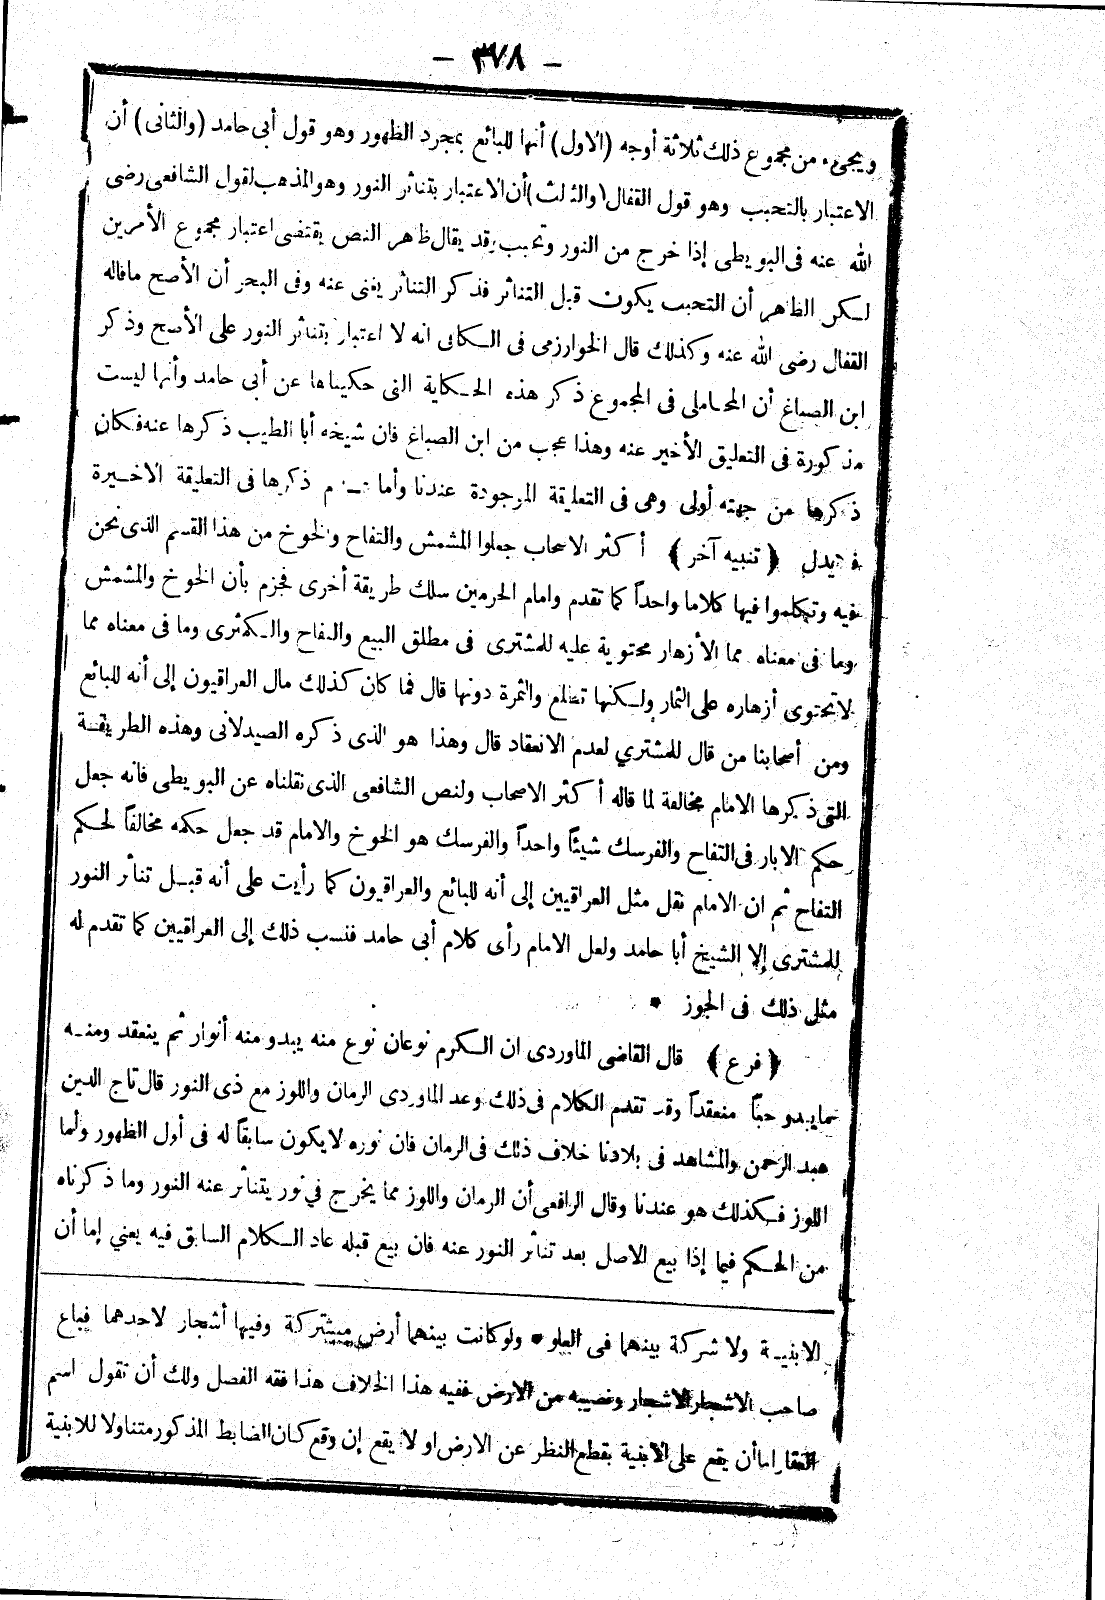 — ٣٧٨ —
ويجىء من مجموع ذلك ثلاثة أوجه (الاول) أنها للبائع بمجرد الظهور وهو قول أبى حامد (والثانى) أن
الاعتبار بالتحبب وهو قول القفال (والثالث) أن الاعتبار بتناثر النور وهو المذهب لقول الشافعى رضى
الله عنه فى البويطى إذا خرج من النور وتحبب وقد يقال ظاهر النص يقتضى اعتبار مجموع الأمرين
لكن الظاهر أن التحبب يكون قبل التناثر فذكر التناثر يغنى عنه وفى البحر أن الأصح ماقاله
القفال رضى الله عنه وكذلك قال الخوارزمى فى الكافى انه لا اعتبار بتناثر النور على الأصح وذكر
ابن الصباغ أن المحاملى فى المجموع ذكر هذه الحكاية التى حكيناها عن أبى حامد وأنها ليست
مذكورة فى التعليق الأخير عنه وهذا عجب من ابن الصباغ فان شيخه أبا الطيب ذكرها عنه فكان
ذكرها من جهته أولى وهى فى التعليقة الموجودة عندنا وأما عدم ذكرها فى التعليقة الاخيرة
فلايدل ﴿ تنبيه آخر ﴾ أكثر الاصحاب جعلوا المشمش والتفاح والخوخ من هذا القسم الذى نحن
فيه وتكلموا فيها كلاما واحداً كما تقدم وامام الحرمين سلك طريقة أخرى فجزم بأن الخوخ والمشمش
وما فى معناه مما الأزهار محتوية عليه للمشترى فى مطلق البيع والتفاح والكمثرى وما فى معناه مما
لاتحتوى أزهاره على الثمار ولكنها تطلع والثمرة دونها قال فما كان كذلك مال العراقيون إلى أنه للبائع
ومن أصحابنا من قال للمشتري لعدم الانعقاد قال وهذا هو الذى ذكره الصيدلانى وهذه الطريقة
التى ذكرها الامام مخالفة لما قاله أكثر الاصحاب ولنص الشافعى الذى نقلناه عن البويطى فانه جعل
حكم الابار فى التفاح والفرسك شيئاً واحداً والفرسك هو الخوخ والامام قد جعل حكمه مخالفاً لحكم
التفاح ثم ان الامام نقل مثل العراقيين إلى أنه للبائع والعراقيون كما رأيت على أنه قبل تناثر النور
للمشترى إلا الشيخ أبا حامد ولعل الامام رأى كلام أبى حامد فنسب ذلك إلى العراقيين كما تقدم له
مثل ذلك فى الجوز •
﴿ فرع ﴾ قال القاضى الماوردى ان الكرم نوعان نوع منه يبدو منه أنوار ثم ينعقد ومنه
مايبدو حباً منعقداً وقد تقدم الكلام فى ذلك وعد الماوردى الرمان واللوز مع ذى النور قال تاج الدين
عبد الرحمن والمشاهد فى بلادنا خلاف ذلك فى الرمان فان نوره لايكون سابقاً له فى أول الظهور وأما
اللوز فكذلك هو عندنا وقال الرافعى أن الرمان واللوز مما يخرج في نور يتناثر عنه النور وما ذكرناه
من الحكم فيما إذا بيع الاصل بعد تناثر النور عنه فان بيع قبله عاد الكلام السابق فيه يعني إما أن
الابنية ولا شركة بينهما فى العلو • ولو كانت بينهما أرض مشتركة وفيها أشجار لاحدهما فباع
صاحب الاشجار الاشجار ونصيبه من الارض ففيه هذا الخلاف هذا فقه الفصل ولك أن تقول اسم
العقار اما أن يقع على الابنية بقطع النظر عن الارض او لا يقع إن وقع كان الضابط المذكور متناولا للابنية